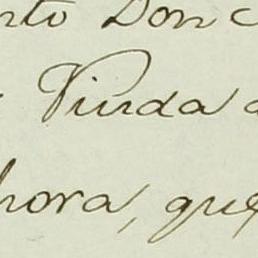 nto Don C
Viuda d
hora, que